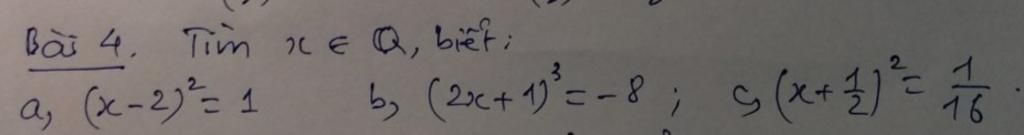 Bài 4. Tìm x ∈ Q, biết:
a, (x-2)² = 1 b, (2x+1)³ = -8 ; c, (x+1/2)² = 1/16 .